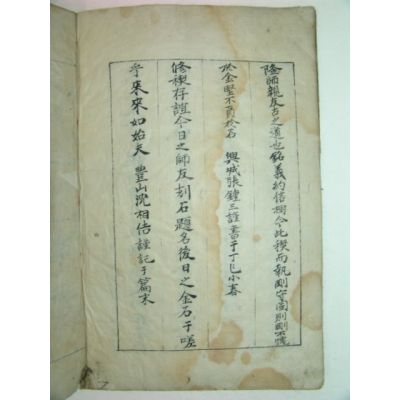 隆師親友古之道也銘義約信樹今此稧而執剛守固則剛不愧
於金堅不負於石 興城張鐘三謹書于丁巳小春
修稧存誼今日之師友刻石題名後日之金石于嗟
乎襄來如始夫 豊山沈相倍謹記于篇末